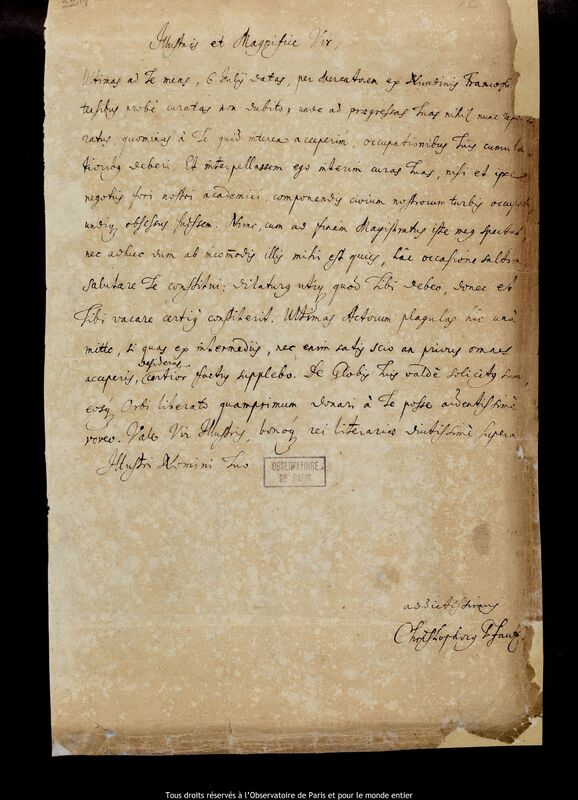 Illustris et Magnifice Vir,
Ultimas ad Te meas, 6 Julij datas, per Mercatorem ex Nundinis Francof
tensibus probè curatas non dubito; unde ad progressas tuas nihil nunc
ratus, quominus à Te quid interea acceperim, occupationibus Tuis cumula
tioribq deberi. Et interpellassem ego interim curas tuas, nisi et ipse
negotijs fori nostri academici, componendis civium nostrorum turbis occupatq
undiq obsessus fuissem. Nunc, cum ad finem Magistratus iste meq spectat,
nec adhuc dum ab incomodis illis mihi est quies, hâc occasione saltim
salutare Te constitui: dilaturq utiq quod Tibi debeo, donec et
Tibi vacare certiq constiterit. Ultimas Actorum plagulas hîc unà
mitto, si quas ex intermedijs, nec enim satis scio an priores omnes
acceperis, desideras
certior factus supplebo. De Globis Tuis valdè solicitq sum,
eosq Orbi literato quamprimum donari à Te posse ardentissimè
voveo. Vale Vir Illustris, bonoq rei literariae diutissimè supera
Illustri Nomini Tuo
OBSERVATOIRE
DE PARIS
addictissimus
Christophorq Pfautz
Tous droits réservés à l'Observatoire de Paris et pour le monde entier